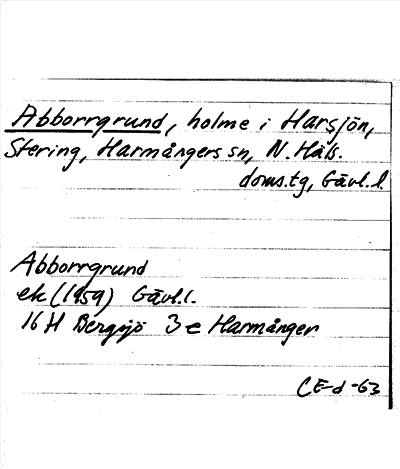 Abborrgrund, holme i Harsjön,
Stering, Harmångers sn, N. Häls.
doms.tg, Gävl.l.
Abborrgrund
ek (1959) Gävl.l.
16H Bergsjö 3e Harmånger
CE-d -63